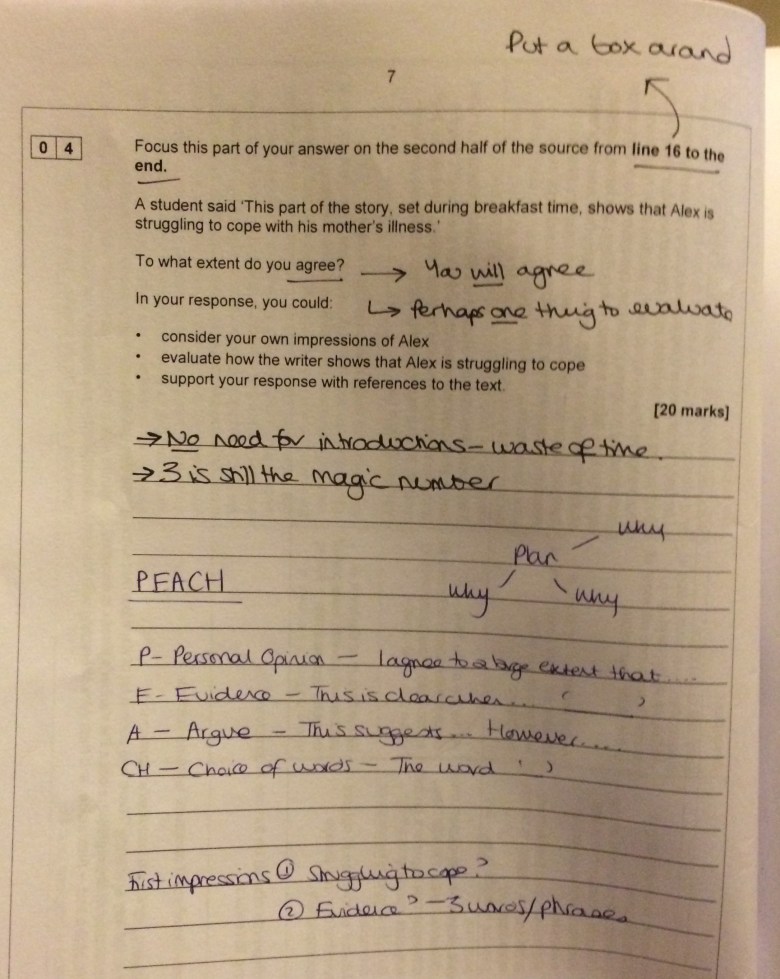 Put a box arand
7
0 4
Focus this part of your answer on the second half of the source from line 16 to the
end.
A student said 'This part of the story, set during breakfast time, shows that Alex is
struggling to cope with his mother's illness.'
To what extent do you agree? → You will agree
In your response, you could: ↳ Perhaps one thing to evaluate
• consider your own impressions of Alex
• evaluate how the writer shows that Alex is struggling to cope
• support your response with references to the text.
[20 marks]
→ No need for introductions – waste of time.
→ 3 is still the magic number
why
Plan
PEACH
why why
P – Personal Opinion – I agree to a large extent that....
E – Evidence – This is clear when... ' '
A – Argue – This suggests... However....
CH – Choice of words – The word ' '
First impressions ① Struggling to cope?
② Evidence? – 3 words/phrases